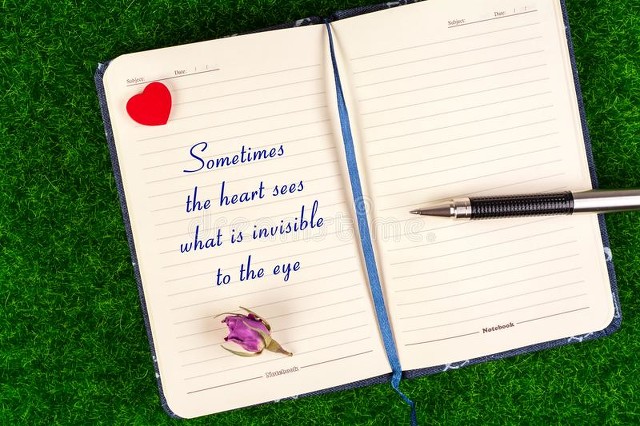 Subject: Date:
Sometimes
the heart sees
what is invisible
to the eye
Notebook
Subject: Date:
Notebook